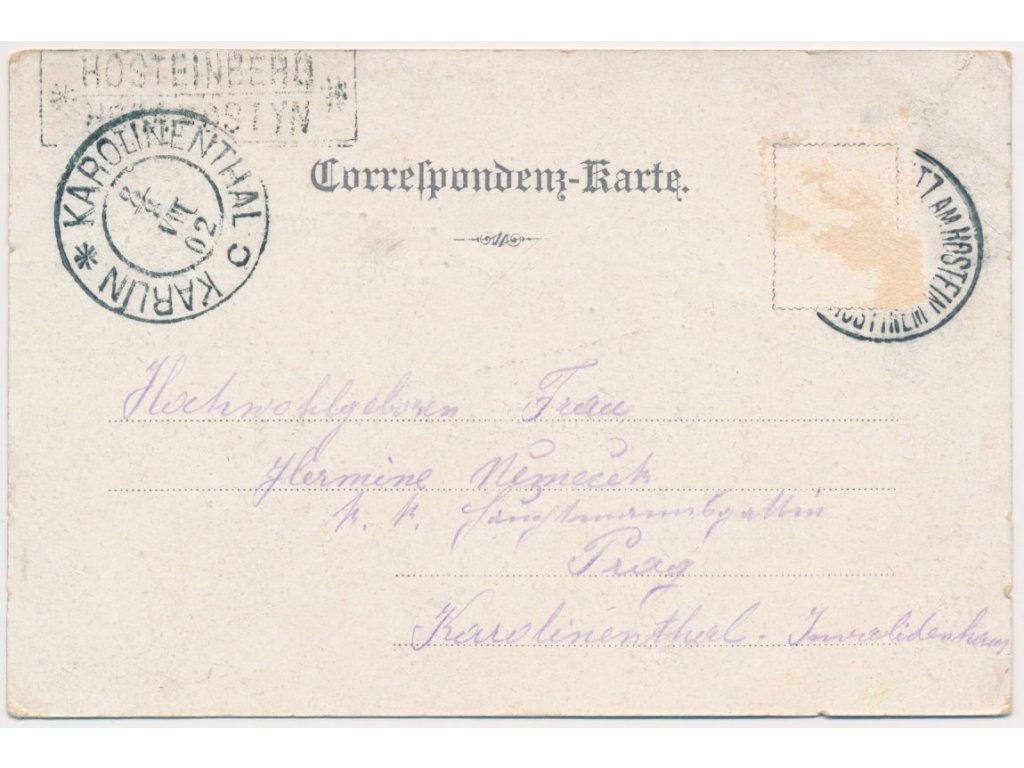 HOSTEINBERG
KAROLINENTHAL C KARLÍN
8/8 VII 02
Correspondenz-Karte.
TZ AM HOSTEIN
HOSTINEM
Hochwohlgeboren Frau
Hermine Němeček
k. k. Hauptmannsgattin
Prag
Karolinenthal - Invalidenhaus